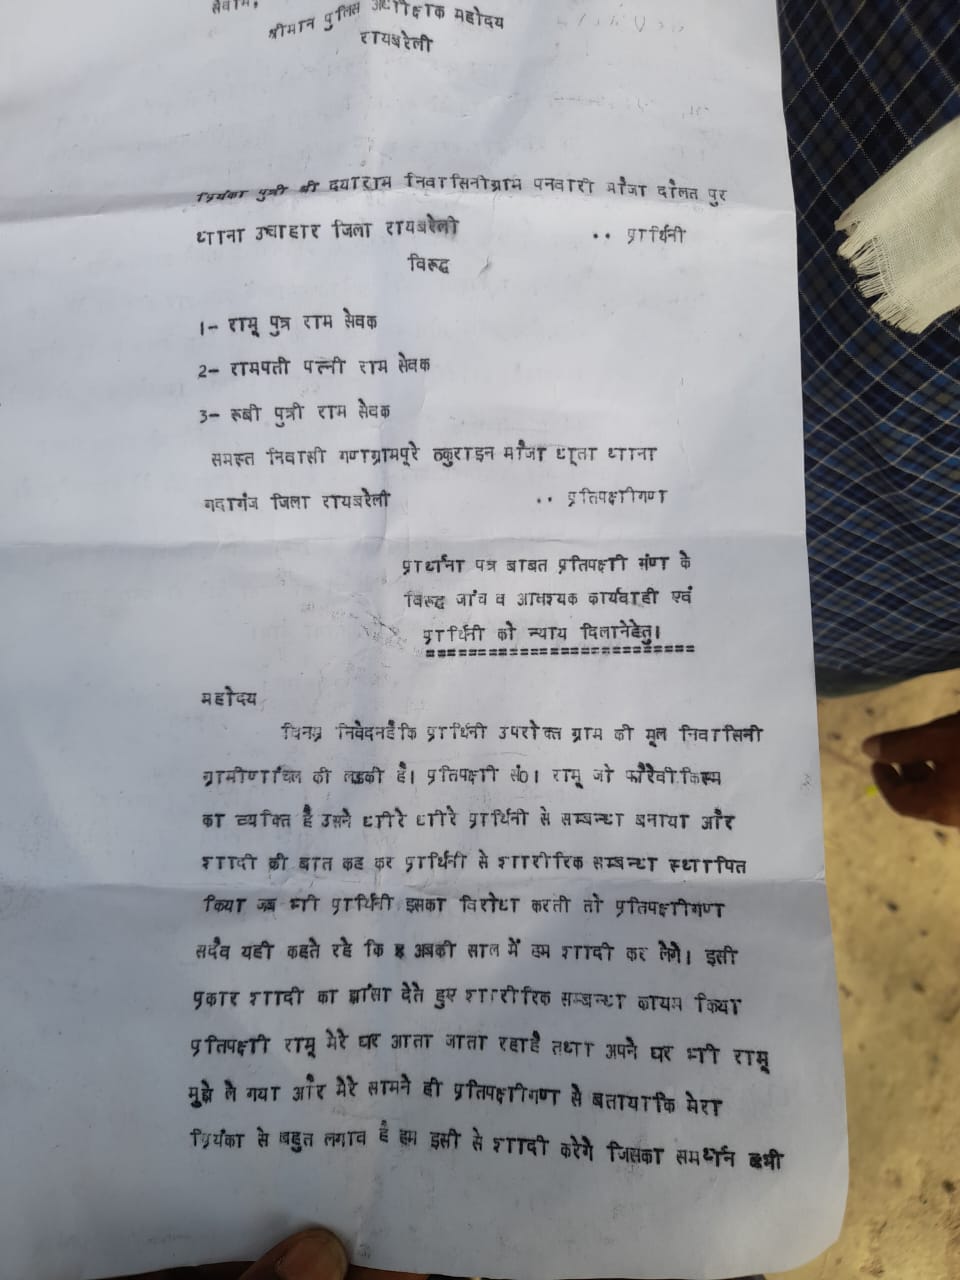 सेवाम,
श्रीमान पुलिस अधीक्षक महोदय
रायबरेली
प्रियंका पुत्री श्री दयाराम निवासिनीग्राम पनवारी मौजा दौलत पुर
थाना ऊचाहार जिला रायबरेली .. प्रार्थिनी
विरूद्ध
1- रामू पुत्र राम सेवक
2- रामपती पत्नी राम सेवक
3- रूबी पुत्री राम सेवक
समस्त निवासी गणग्रामपूरे ठकुराइन मौजा धूता थाना
गदागंज जिला रायबरेली .. प्रतिपक्षीगण
प्रार्थना पत्र बाबत प्रतिपक्षी गण के
विरूद्ध जांच व आवश्यक कार्यवाही एवं
प्रार्थिनी को न्याय दिलानेहेतु।
महोदय
विनम्र निवेदनहैकि प्रार्थिनी उपरोक्त ग्राम की मूल निवासिनी
ग्रामीणांचल की लडकी है। प्रतिपक्षी सं0। रामू जो फौरेवी किस्म
का व्यक्ति है उसने धीरे धीरे प्रार्थिनी से सम्बन्ध बनाया और
शादी की बात कह कर प्रार्थिनी से शारीरिक सम्बन्ध स्थापित
किया जब भी प्रार्थिनी इसका विरोध करती तो प्रतिपक्षीगण
सदैव यही कहते रहे कि अबकी साल में हम शादी कर लेगे। इसी
प्रकार शादी का झांसा देते हुए शारीरिक सम्बन्ध कायम किया
प्रतिपक्षी रामू मेरे घर आता जाता रहाहै तथा अपने घर भी रामू
मुझे ले गया और मेरे सामने ही प्रतिपक्षीगण से बतायाकि मेरा
प्रियंका से बहुत लगाव है हम इसी से शादी करेगे जिसका समर्थन सभी